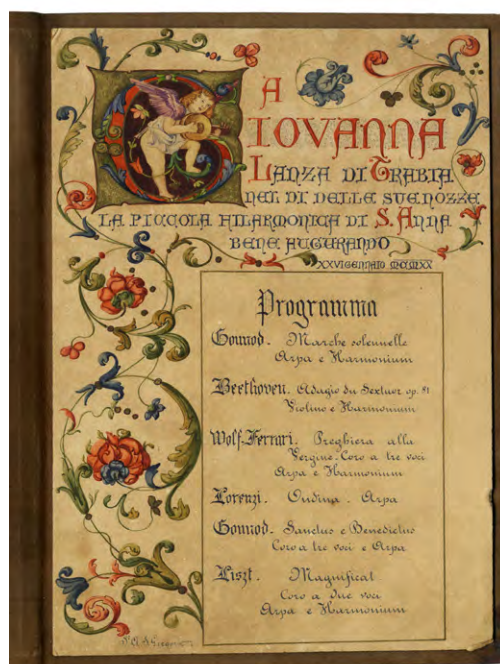 A
GIOVANNA
LANZA DI TRABIA
NEL DÌ DELLE SUE NOZZE
LA PICCOLA FILARMONICA DI S. ANNA
BENE AUGURANDO
XXVI GENNAIO MCMXX
Programma
Gounod. Marche solennelle
Arpa e Harmonium
Beethoven. Adagio du Sextuor op. 81
Violino e Harmonium
Wolf-Ferrari. Preghiera alla
Vergine. Coro a tre voci
Arpa e Harmonium
Lorenzi. Ondina. Arpa
Gounod. Sanctus e Benedictus
Coro a tre voci e Arpa
Liszt. Magnificat
Coro a due voci
Arpa e Harmonium